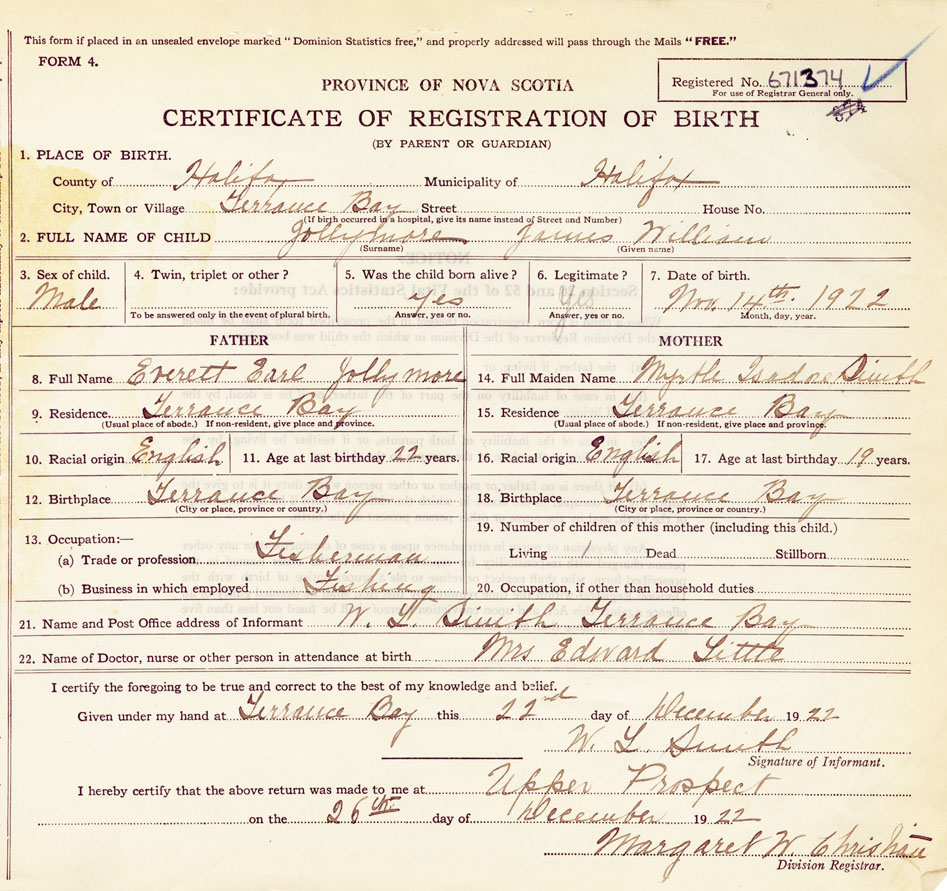 This form if placed in an unsealed envelope marked "Dominion Statistics free," and properly addressed will pass through the Mails "FREE."
FORM 4.
PROVINCE OF NOVA SCOTIA
Registered No. 671374
For use of Registrar General only.
374
CERTIFICATE OF REGISTRATION OF BIRTH
(BY PARENT OR GUARDIAN)
1. PLACE OF BIRTH.
County of Halifax Municipality of Halifax
City, Town or Village Terrance Bay Street House No.
(If birth occurred in a hospital, give its name instead of Street and Number)
2. FULL NAME OF CHILD Jollymore James William
(Surname) (Given name)
3. Sex of child. 4. Twin, triplet or other? 5. Was the child born alive? 6. Legitimate? 7. Date of birth.
Male Yes Yes Nov. 14th. 1922
To be answered only in the event of plural birth. Answer, yes or no. Answer, yes or no. Month, day, year.
FATHER MOTHER
8. Full Name Everett Earl Jollymore 14. Full Maiden Name Myrtle Isadore Smith
9. Residence. Terrance Bay 15. Residence Terrance Bay
(Usual place of abode.) If non-resident, give place and province. (Usual place of abode.) If non-resident, give place and province.
10. Racial origin English 11. Age at last birthday 22 years. 16. Racial origin English 17. Age at last birthday 19 years.
12. Birthplace Terrance Bay 18. Birthplace Terrance Bay
(City or place, province or country.) (City or place, province or country.)
13. Occupation:— 19. Number of children of this mother (including this child.)
(a) Trade or profession Fisherman Living 1 Dead Stillborn
(b) Business in which employed Fishing 20. Occupation, if other than household duties
21. Name and Post Office address of Informant W. L. Smith Terrance Bay
22. Name of Doctor, nurse or other person in attendance at birth Mrs Edward Little
I certify the foregoing to be true and correct to the best of my knowledge and belief.
Given under my hand at Terrance Bay this 22nd day of December 1922
W. L. Smith
Signature of Informant.
I hereby certify that the above return was made to me at Upper Prospect
on the 26th day of December 1922
Margaret W. Christian
Division Registrar.